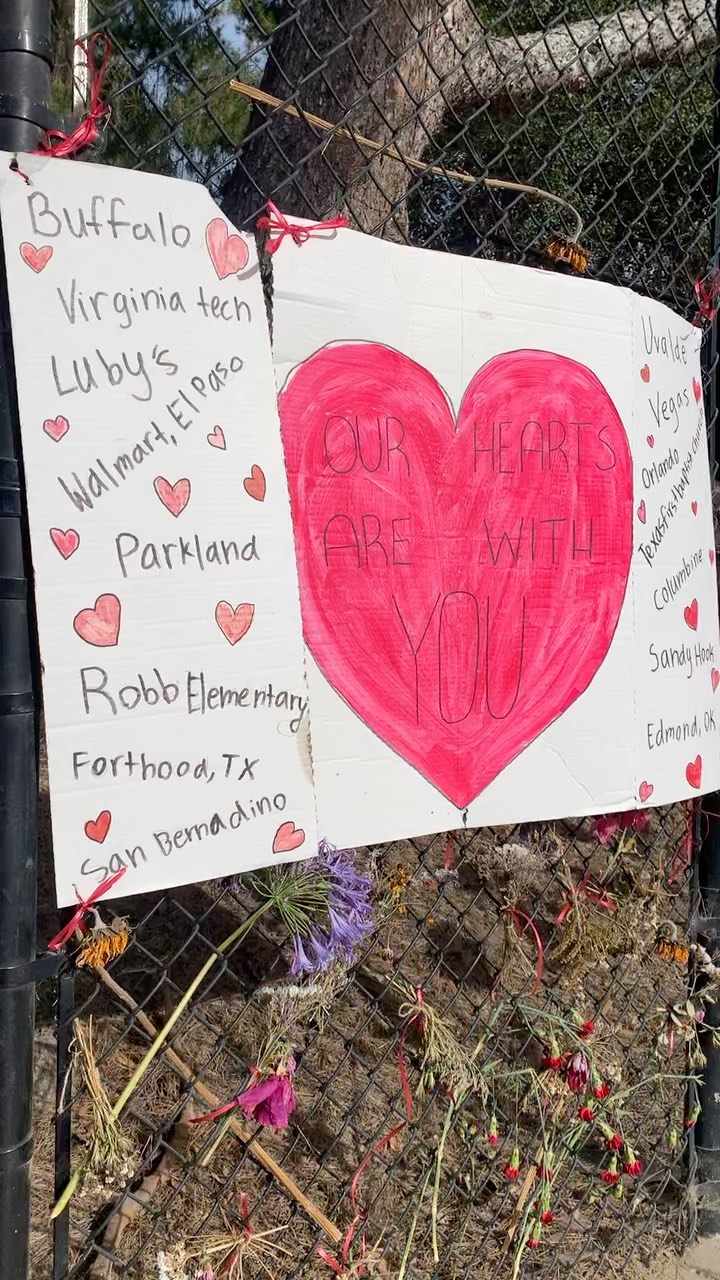 Buffalo
Virginia tech
Luby's
Walmart, El Paso
Parkland
Robb Elementary
Forthood, TX
San Bernadino
OUR HEARTS
ARE WITH
YOU
Uvalde
Vegas
Orlando
Texas first baptist church
Columbine
Sandy Hook
Edmond, OK